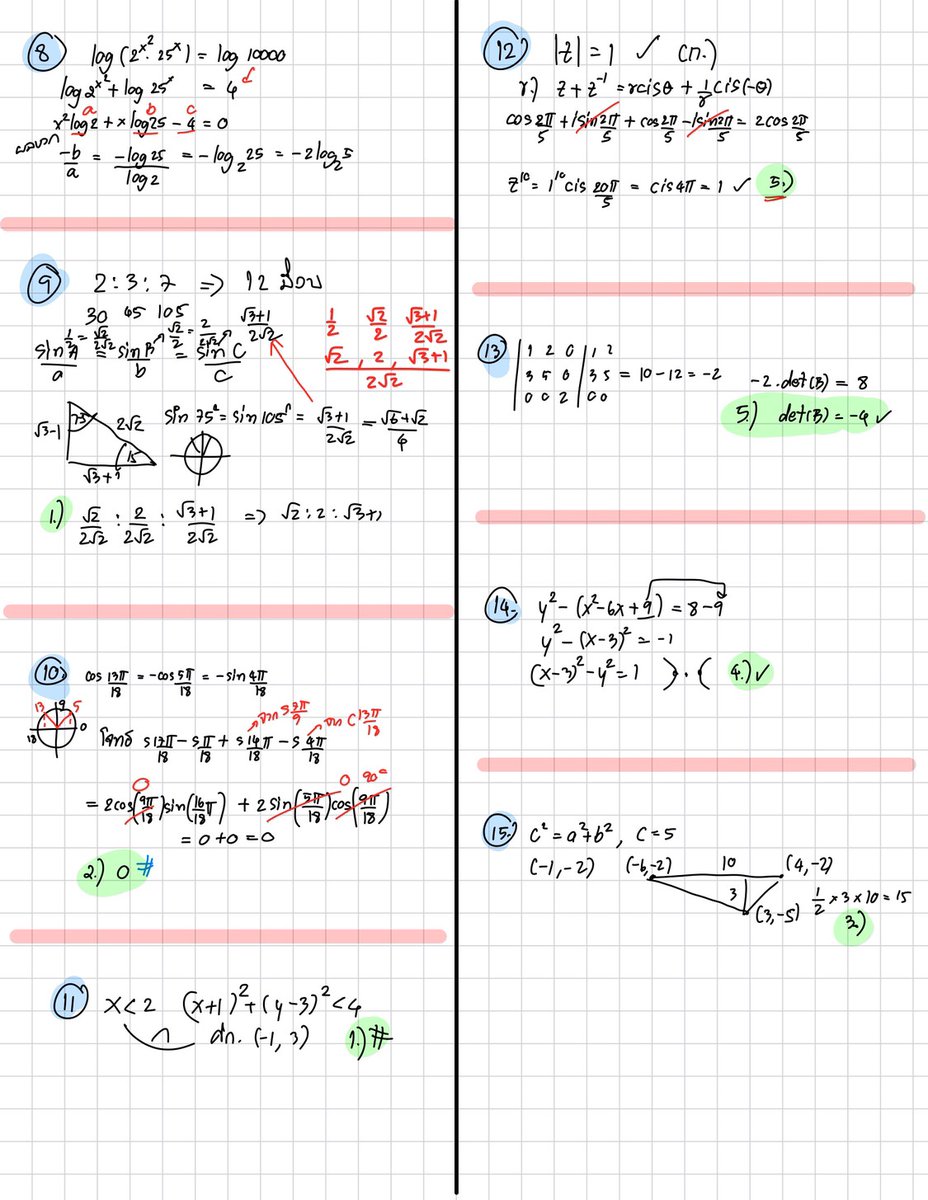 8 log(2^x². 25^x) = log 10000
log 2^x² + log 25^x = 4
a b c
x² log2 + x log25 - 4 = 0
ผลบวก -b/a = -log25/log2 = -log₂25 = -2log₂5
9 2:3:7 => 12 ส่วน
30 45 105
1/2 = √2/2√2 √2/2 = 2/2√2 √3+1/2√2
sin A/a = sin B/b = sin C/c
1/2 √2/2 √3+1/2√2
√2 , 2 , √3+1
2√2
√3-1 75° 2√2 15 √3+1
sin 75° = sin 105° = √3+1/2√2 = √6+√2/4
1.) √2/2√2 : 2/2√2 : √3+1/2√2 => √2 : 2 : √3+1
10) cos 13π/18 = -cos 5π/18 = -sin 4π/18
13 9 5
18 0
จาก S 7π/9 จาก C 13π/18
โจทย์ s 17π/18 - s π/18 + s 14π/18 - s 4π/18
0 0 90°
= 2cos(9π/18)sin(16π/18) + 2sin(5π/18)cos(9π/18)
= 0+0 = 0
2.) 0 #
11) x<2 (x+1)²+(y-3)²<4
∩ ศก. (-1, 3) 1.) #
12) |z| = 1 ✓ (ก.)
ข.) z + z⁻¹ = rcisθ + 1/r cis(-θ)
cos 2π/5 + isin 2π/5 + cos 2π/5 - isin 2π/5 = 2cos 2π/5
z¹⁰ = 1¹⁰ cis 20π/5 = cis 4π = 1 ✓ 5.)
13) | 1 2 0 | 1 2
| 3 5 0 | 3 5 = 10-12 = -2
| 0 0 2 | 0 0
-2.det(B) = 8
5.) det(B) = -4 ✓
14. y² - (x²-6x+9) = 8-9
y² - (x-3)² = -1
(x-3)² - y² = 1 )·( 4.) ✓
15.) c² = a²+b² , c = 5
(-1,-2) (-6,-2) 10 (4,-2)
3 (3,-5) 1/2 × 3 × 10 = 15
3.)